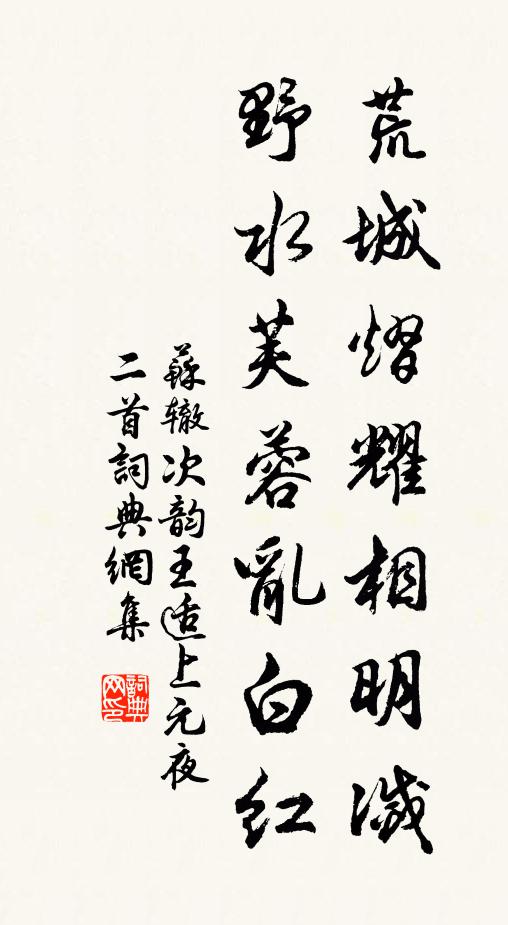 荒城熠耀相明滅
野水芙蓉亂白红
蘇辙次韵王适上元夜
二首詞典網集
詞典网印